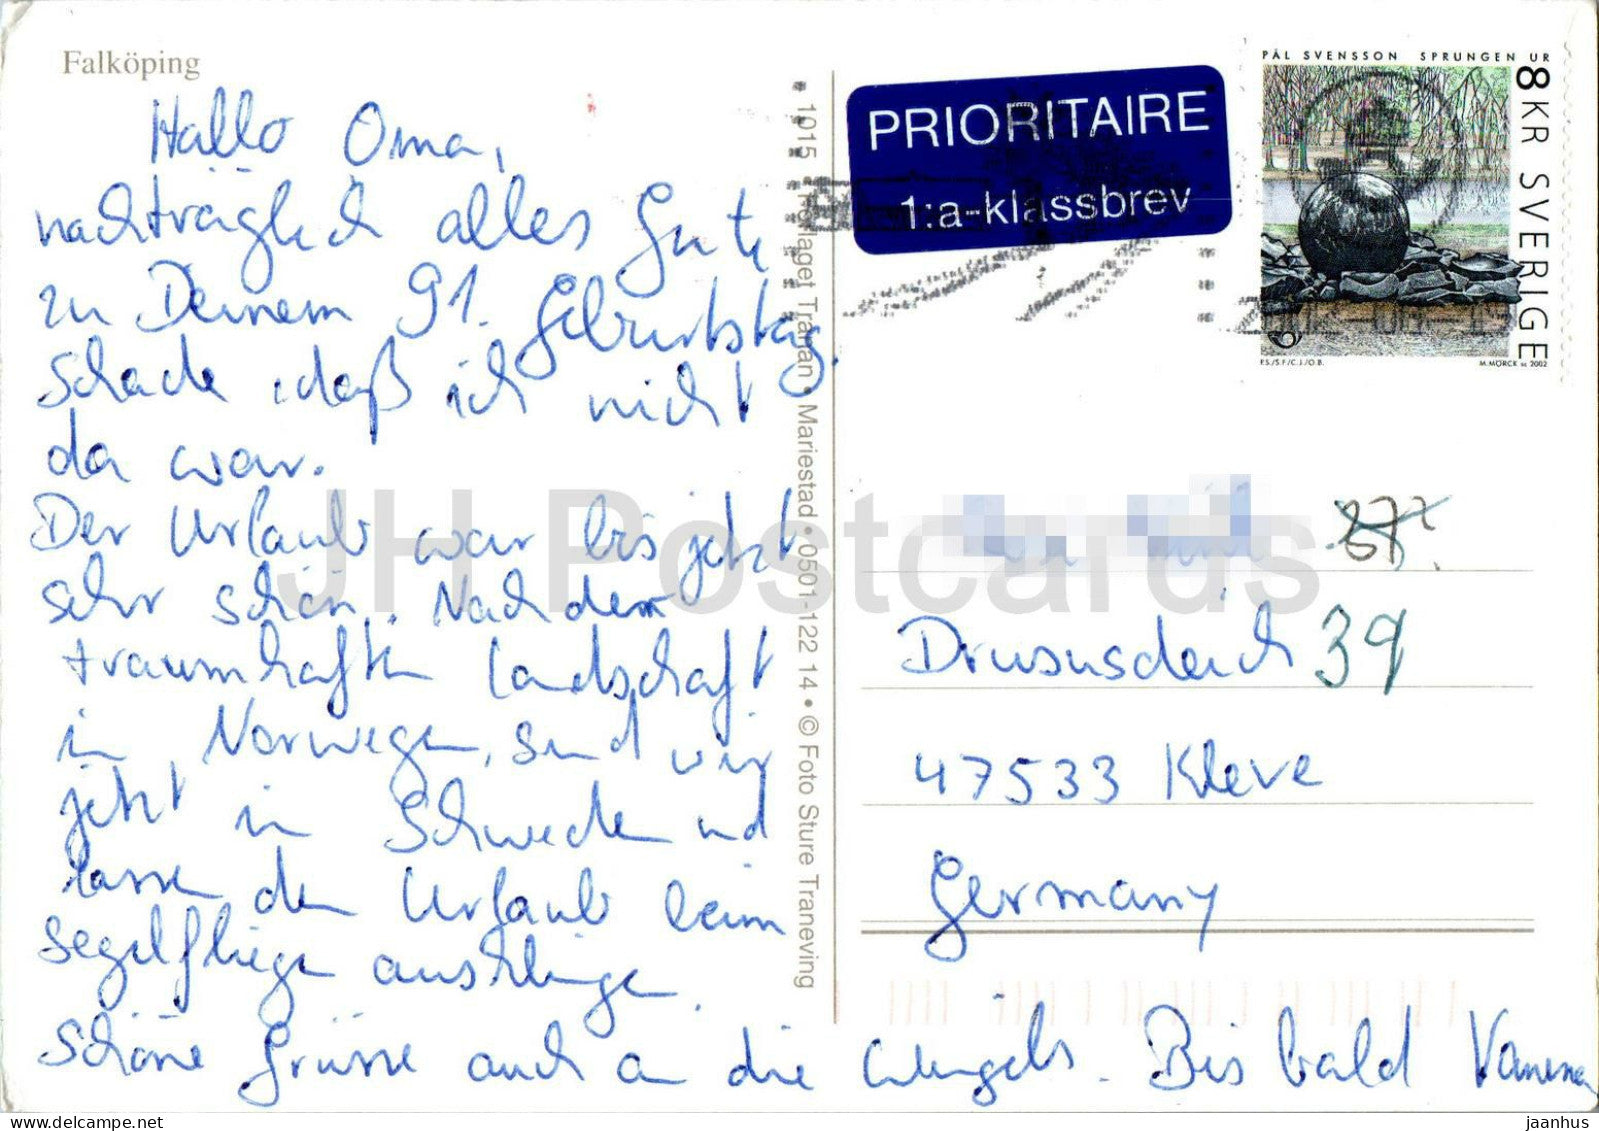 Falköping
Hallo Oma,
nachträglich alles Gute
zu Deinem 91. Geburtstag.
Schade, daß ich nicht
da war.
Der Urlaub war bis jetzt
sehr schön. Nach dem
traumhaften Landschaft
in Norwegen, sind wir
jetzt in Schweden und
lassen den Urlaub beim
Segelfliegen ausklingen.
Schöne Grüsse auch an die . Bis bald Vanessa
• 1015 • Förlaget Tranan • Mariestad • 0501-122 14 • © Foto Sture Traneving
PRIORITAIRE
1:a-klassbrev
PÅL SVENSSON SPRUNGEN UR
8 KR SVERIGE
P.S./S.F/C.J./O.B. M.MÖRCK sc 2002
37?
Drususdeich 39
47533 Kleve
Germany
JH Postcards
delcampe.net
jaanhus